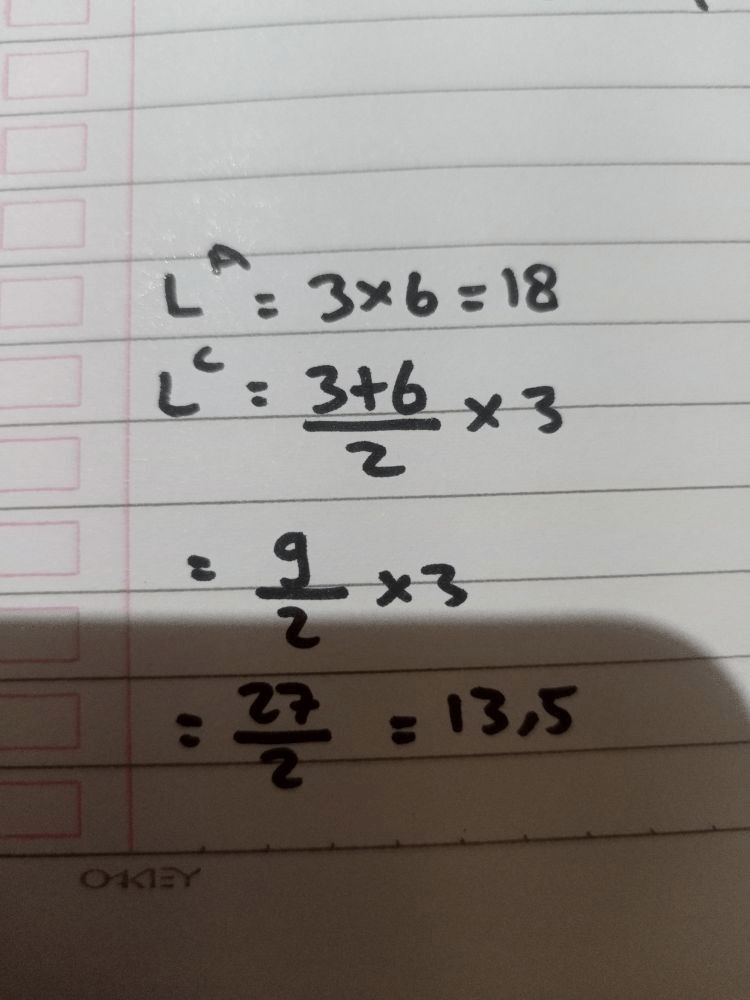 L^A = 3×6 = 18
L^C = 3+6/2 × 3
= 9/2 ×3
= 27/2 = 13,5
OKEY